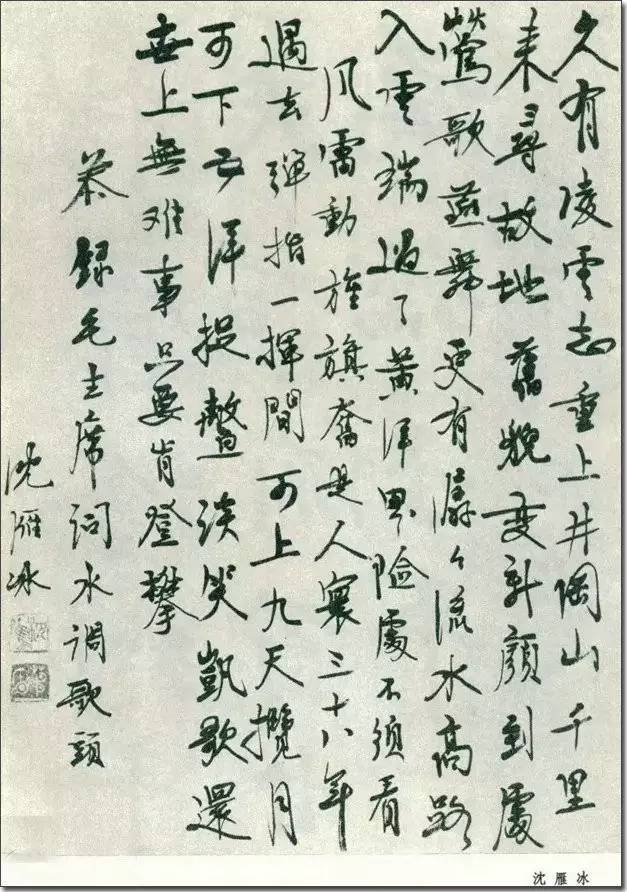 久有凌雲志重上井岡山千里
来尋故地舊貌变新顔到處
鶯歌燕舞更有潺々流水高路
入雲端過了黄洋界險處不須看
风雷動旌旗奮是人寰三十八年
過去彈指一揮間可上九天攬月
可下五洋捉鱉談笑凱歌還
世上無难事只要肯登攀
恭録毛主席词水調歌頭
沈雁冰
沈雁冰